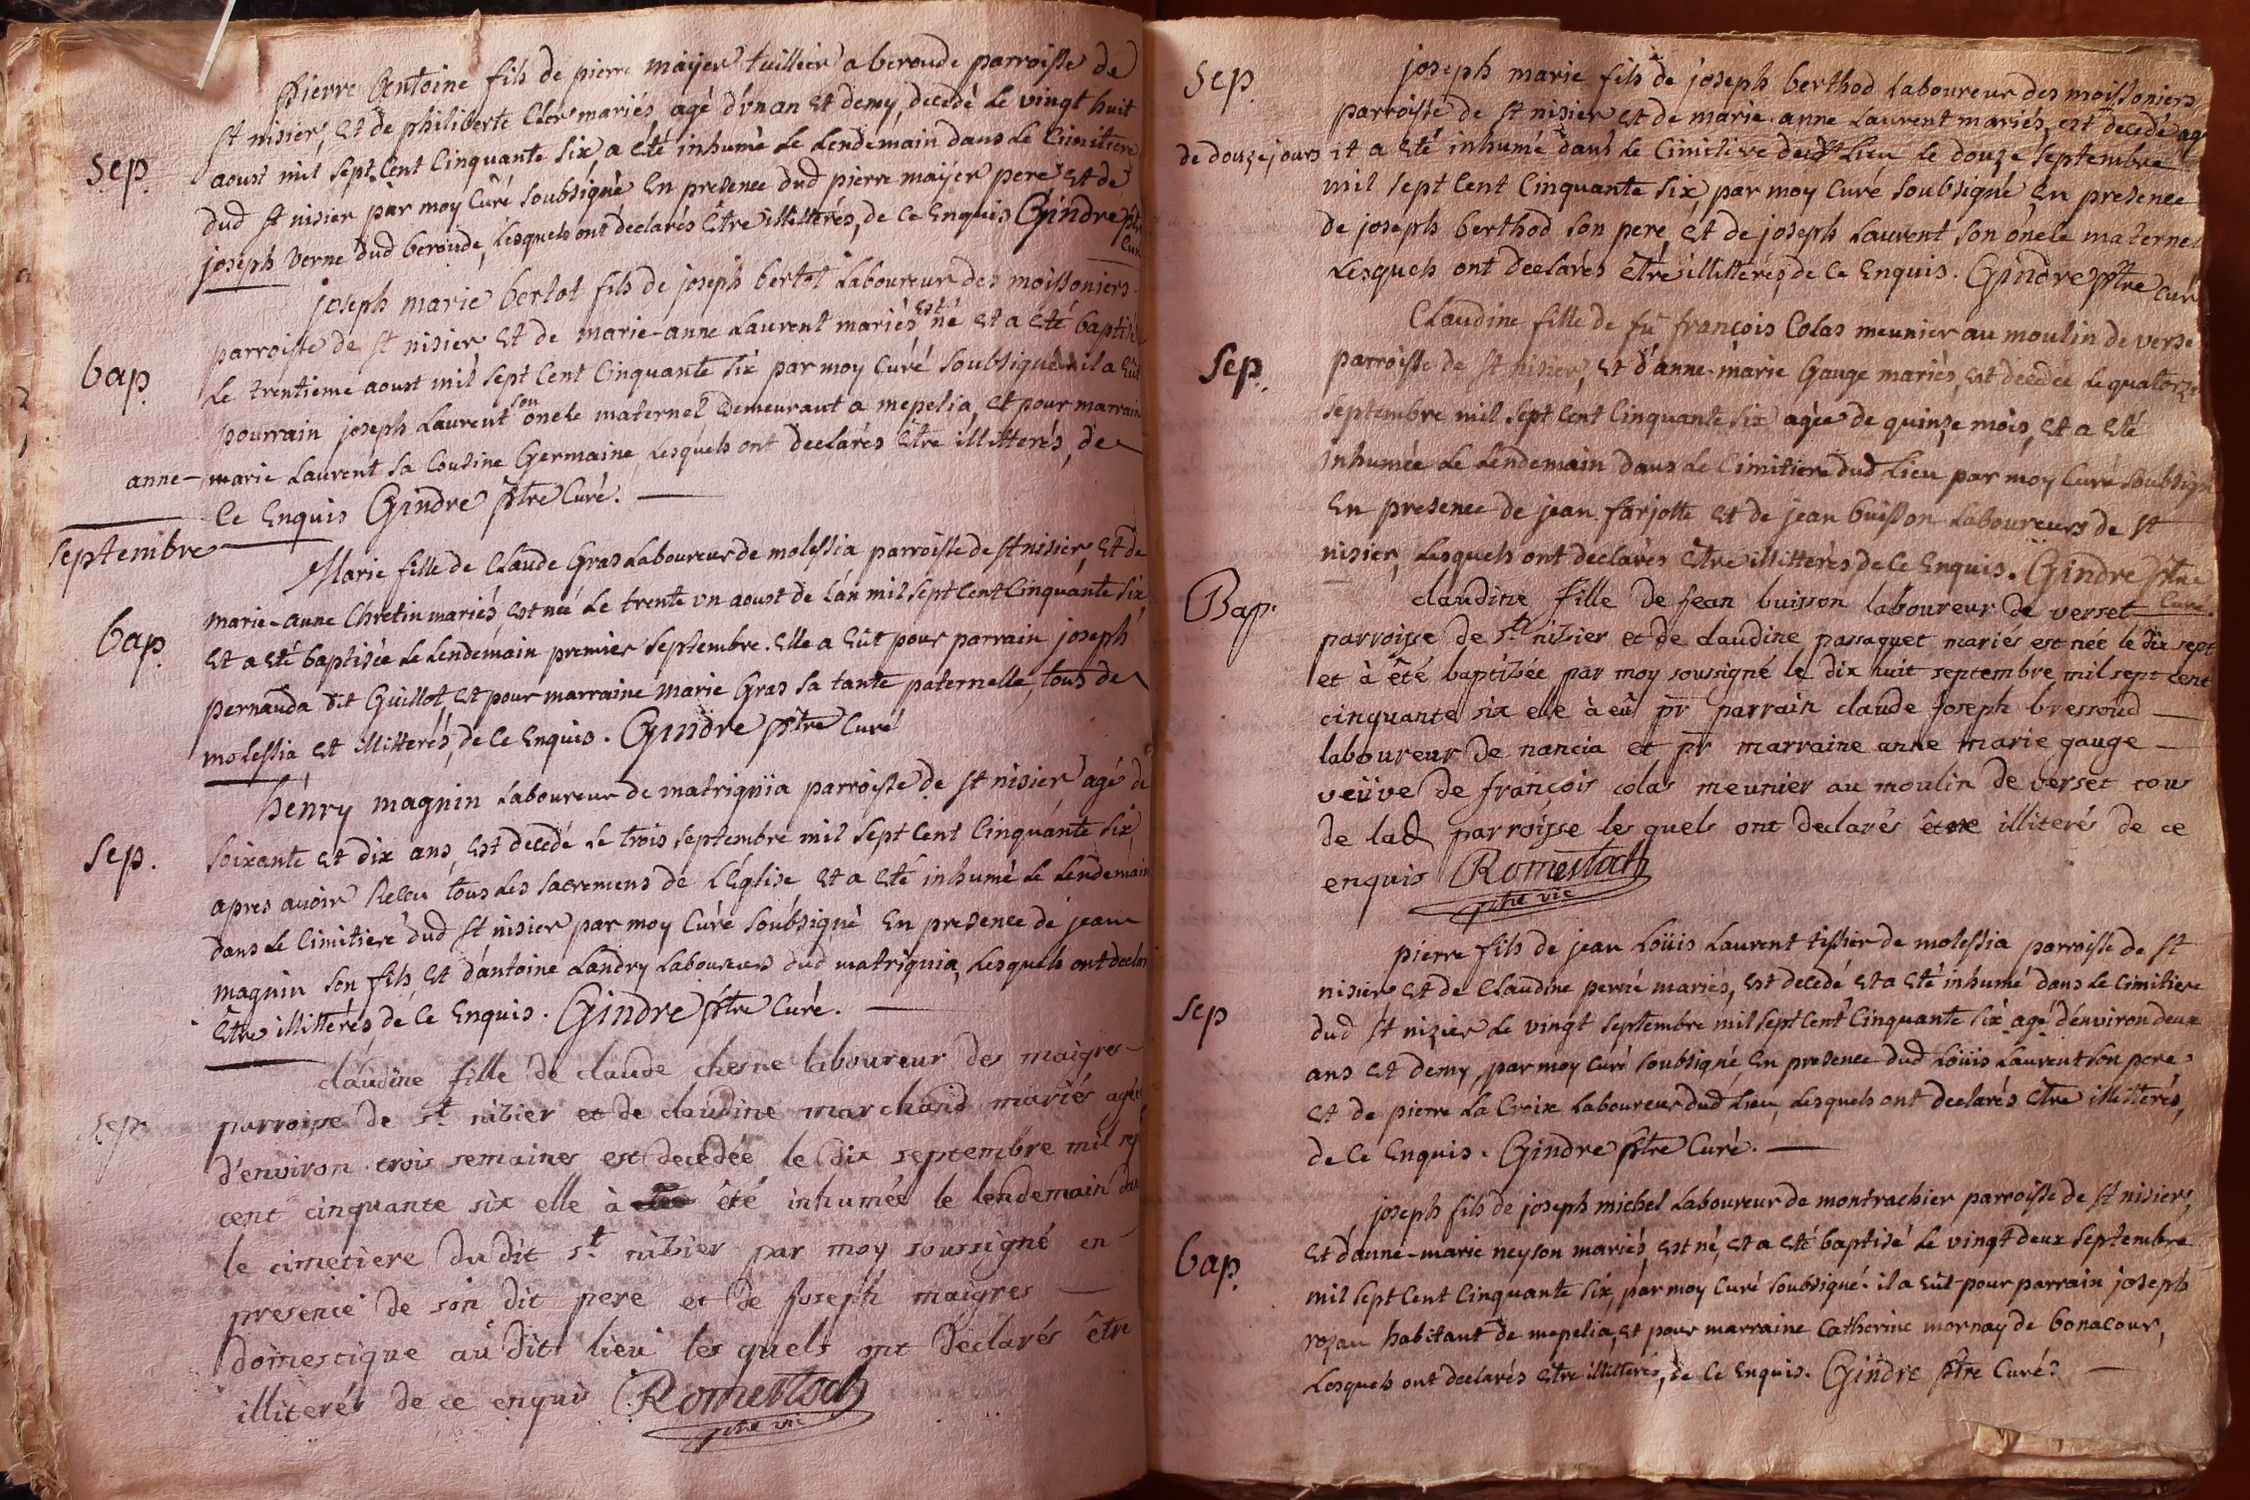 pierre Antoine fils de pierre maÿer tuillier a beroude parroisse de
st nisier, et de philiberte Cler mariés, agé d'vn an et demy, decedé le vingt huit
sep. aoust mil sept cent cinquante six, a été inhumé le lendemain dans le cimitiere
dud st nisier par moy curé soubsigné en presence dud pierre maÿer pere et de
joseph verne dud beroude, lesquels ont déclarés être illitterés, de ce enquis Gindre ptre
curé
joseph marie bertot fils de joseph bertot laboureur des moissoniers
parroisse de st nisier et de marie-anne laurent mariés est né et a été baptisé
bap. le trentieme aoust mil sept cent cinquante six par moy curé soubsigné il a eüt
pourrain joseph laurent son oncle maternel demeurant a mepelia, et pour marraine
anne-marie laurent sa cousine germaine lesquels ont declarés être illitterés, de
ce enquis Gindre ptre curé.
septembre
Marie fille de claude Gras laboureur de molessia parroisse de st nisier et de
marie-anne chretin mariés, est née le trente vn aoust de l'an mil sept cent cinquante six
bap. et a été baptisée le lendemain premier septembre. elle a eüt pour parrain joseph
pernauda dit Guillot, et pour marraine marie Gras sa tante paternelle, tous de
molessia et illitterés, de ce enquis. Gindre ptre curé
henry magnin laboureur de matrignia parroisse de st nisier agé de
sep. soixante et dix ans, est decedé le trois septembre mil sept cent cinquante six,
apres avoir receu tous les sacremens de l'église et a été inhumé le lendemain
dans le cimitiere dud st nisier par moy curé soubsigné en presence de jean
magnin son fils et d'antoine landry laboureurs dud matrignia, lesquels ont declarés
être illitterés, de ce enquis. Gindre ptre curé.
claudine fille de claude chesne laboureur des maigres
sep. parroisse de st. nizier et de claudine marchand mariés agée
d'environ trois semaines est decedée le dix septembre mil sept
cent cinquante six elle à été inhumée le lendemain dans
le cimetiere du dit st. nizier par moy soussigné en
presence de son dit pere et de joseph maigres
domestique au dit lieu les quels ont declarés être
illiterés de ce enquis Romestoch
ptre vic
sep. joseph marie fils de joseph berthod laboureur des moissoniers,
parroisse de st nisier et de marie-anne laurent mariés, est decedé agé
de douze jours et a été inhumé dans le cimitiere dud lieu le douze septembre
mil sept cent cinquante six, par moy curé soubsigné, en presence
de joseph berthod son pere, et de joseph laurent son oncle maternel
lesquels ont declarés être illitterés de ce enquis. Gindre ptre curé
Claudine fille de fu françois Colas meunier au moulin de verse
sep. parroisse de st nisier, et d'anne-marie Gauge mariés, est décédée le quatorze
septembre mil sept cent cinquante six agée de quinze mois, et a été
inhumée le lendemain dans le cimitiere dud lieu par moy curé soubsigné
en presence de jean farjotte et de jean buisson laboureurs de st
nisier, lesquels ont declarés être illitterés de ce enquis. Gindre ptre
curé.
Bap. claudine fille de jean buisson laboureur de verset
parroisse de st. nizier et de claudine passaquet mariés est née le dix sept
et à été baptizée par moy soussigné le dix huit septembre mil sept cent
cinquante six elle à eû pr parrain claude joseph bressoud
laboureur de nancia et pr marraine anne marie gauge
veüve de françois colas meunier au moulin de verset tous
de lad parroisse les quels ont declarés être illiterés de ce
enquis Romestoch
ptre vic
pierre fils de jean loüis laurent tissier de molessia parroisse de st
nisier et de claudine perrié mariés, est decedé et a été inhumé dans le cimitiere
sep dud st nizier le vingt septembre mil sept cent cinquante six agé d'environ deux
ans et demy, par moy curé soubsigné, en presence dud loüis laurent son pere,
et de pierre la croix laboureur dud lieu, lesquels ont declarés être illitterés,
de ce enquis. Gindre ptre curé.
joseph fils de joseph michel laboureur de montrachier parroisse de st nisier,
et d'anne-marie neyson mariés, est né, et a été baptisé le vingt deux septembre
bap. mil sept cent cinquante six, par moy curé soubsigné. il a eüt pour parrain joseph
rozau habitant de mepelia, et pour marraine catherine mornay de bonacour,
lesquels ont declarés être illitterés, de ce enquis. Gindre ptre curé.